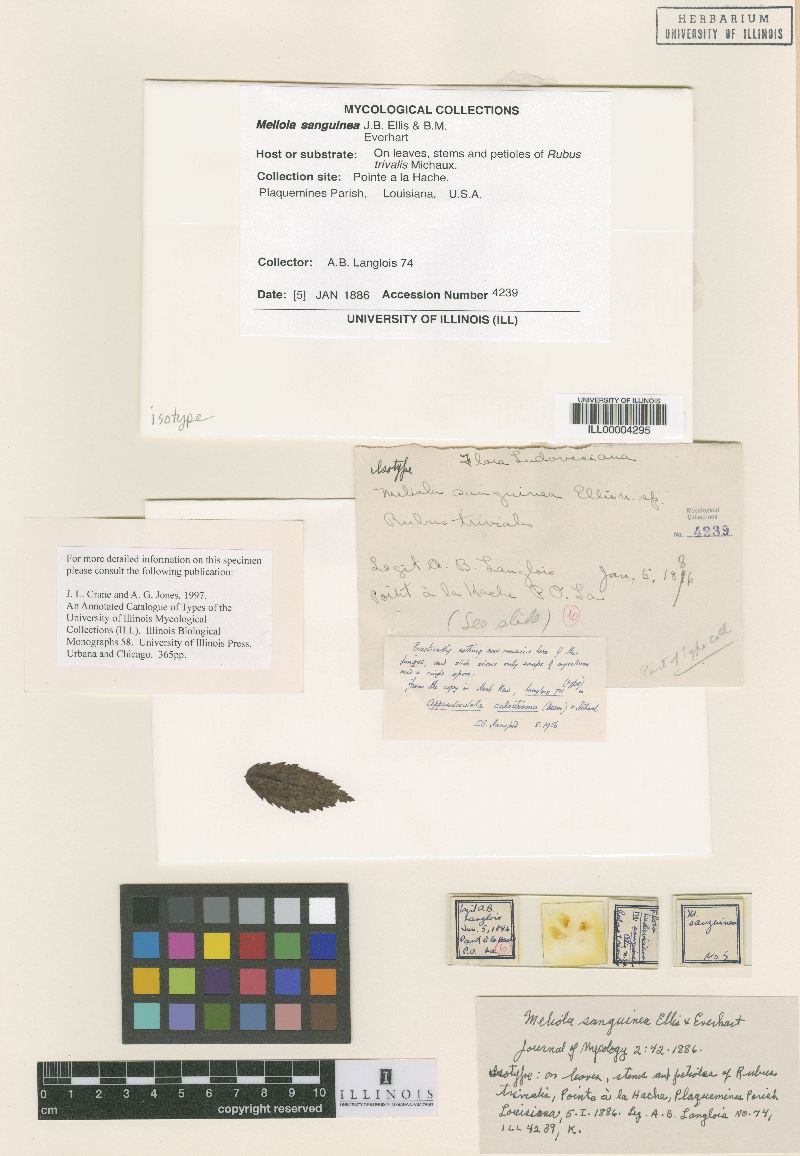 HERBARIUM
UNIVERSITY OF ILLINOIS
MYCOLOGICAL COLLECTIONS
Meliola sanguinea J.B. Ellis & B.M.
Everhart
Host or substrate: On leaves, stems and petioles of Rubus
trivalis Michaux.
Collection site: Pointe a la Hache.
Plaquemines Parish, Louisiana, U.S.A.
Collector: A.B. Langlois 74
Date: [5] JAN 1886 Accession Number 4239
UNIVERSITY OF ILLINOIS (ILL)
isotype
UNIVERSITY OF ILLINOIS
ILL00004295
Isotype Flora Ludoviciana
Meliola sanguinea Ellis n. sp.
Rubus trivialis
Mycological
Collections
No. 4239
Legit A. B. Langlois Jan. 5, 1886
Point à la Hache P.O. La
(See slide) 6
Part of Type coll
For more detailed information on this specimen
please consult the following publication:
J. L. Crane and A. G. Jones, 1997.
An Annotated Catalogue of Types of the
University of Illinois Mycological
Collections (ILL). Illinois Biological
Monographs 58. University of Illinois Press.
Urbana and Chicago. 365pp.
Practically nothing now remains here of the
fungus, and slide shows only scraps of mycelium
and a single spore.
From the copy in Herb Kew, Langlois 74 (type) =
Appendiculella calostroma (Desm.) v. Höhnel
8.1956
Legit A.B.
Langlois
Jan. 5, 1886
Point à la Hache
P.O. La
6
Flora
Ludoviciana
M.
sanguinea
Ellis n. sp.
Rubus trivialis
M.
sanguinea
No 5
Meliola sanguinea Ellis & Everhart
Journal of Mycology 2:42. 1886.
Isotype: on leaves, stems and petioles of Rubus
trivialis, Pointe à la Hache, Plaquemines Parish
Louisiana, 5. I. 1886. Leg. A. B. Langlois No. 74,
ILL 4239, K.
0 1 2 3 4 5 6 7 8 9 10
cm
copyright reserved
I
ILLINOIS
UNIVERSITY OF ILLINOIS AT URBANA-CHAMPAIGN